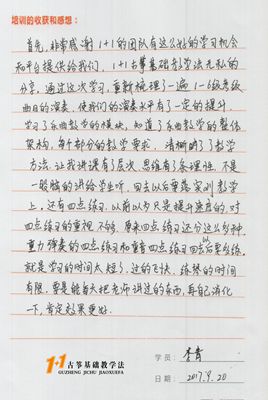 培训的收获和感想：
首先，非常感谢1+1的团队有这么好的学习机会
和平台提供给我们，1+1古筝基础教学法无私的
分享，通过这次学习，重新梳理了一遍1-6级考级
曲目的演奏，使我们的演奏水平有了一定的提升
学习了乐曲教学的模块，知道了乐曲教学的整体
架构，每个部分的教学要求，清晰明了了教学
方法，让我讲课有了层次，思维有了条理性，不是
一股脑的讲给学生听，回去以后要落实到教学
上，还有四点练习，以前以为只是提升速度的，对
四点练习的重视不够，原来四点练习还分这么多种，
重力弹奏的四点练习和重音四点练习回去以后要多练，
就是学习的时间太短了，过的飞快，练琴的时间
有限，要是能每天把老师讲过的东西，再自己消化
一下，肯定效果更好。
1+1古筝基础教学法
GUZHENG JICHU JIAOXUEFA
学员：李青
日期：2017.9.20